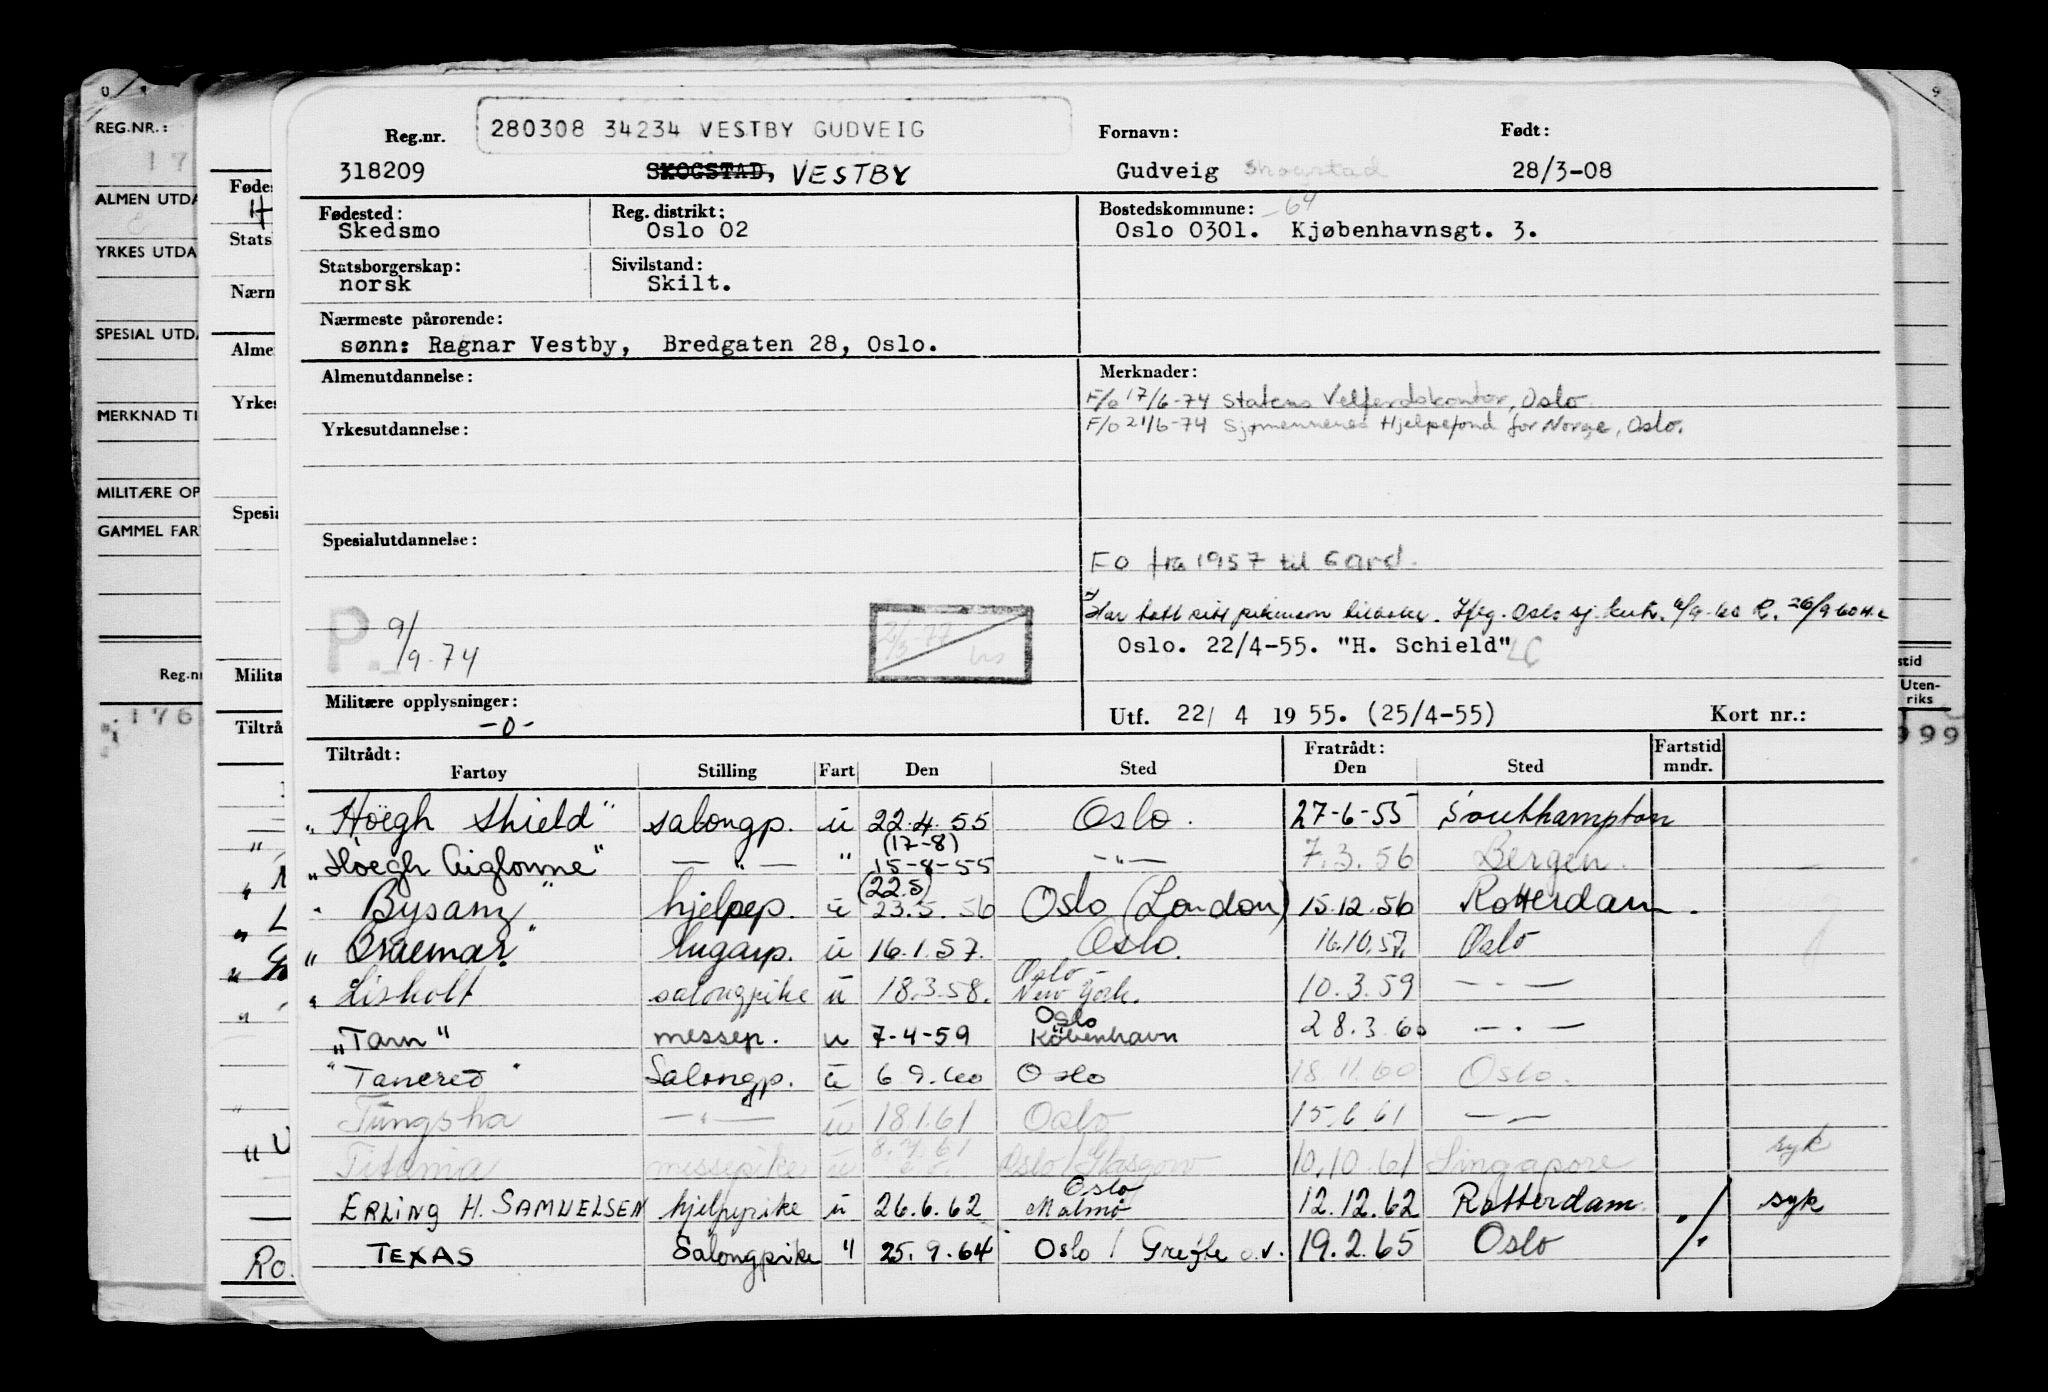 REG.NR.:
ALMEN UTDA
YRKES UTDA
SPESIAL UTDA
MERKNAD TI
MILITÆRE OP
GAMMEL FAR
Reg.nr
176
Fødes
Stats
Nærn
Alme
Yrkes
Spesia
Milita
Tiltrå
Ro.
stid
Uten-
riks
999
280308 34234 VESTBY GUDVEIG
Reg.nr. Fornavn: Født:
318209 SKOGSTAD, VESTBY Gudveig Skogstad 28/3-08
Fødested: Reg. distrikt: Bostedskommune: -64
Skedsmo Oslo 02 Oslo 0301. Kjøbenhavnsgt. 3.
Statsborgerskap: Sivilstand:
norsk Skilt.
Nærmeste pårørende:
sønn: Ragnar Vestby, Bredgaten 28, Oslo.
Almenutdannelse: Merknader:
F/o 17/6-74 Statens Velferdskontor, Oslo.
Yrkesutdannelse: F/o 21/6-74 Sjømennenes Hjelpefond for Norge, Oslo.
Spesialutdannelse:
Fo fra 1957 til Gard.
Har tatt sitt pikenavn tilbake. Iflg. Oslo sj. kont. 6/9-60 R. 26/9 60
P. 9/9-74
Oslo. 22/4-55. "H. Schield" LC
Militære opplysninger: -0-
Utf. 22/ 4 1955. (25/4-55) Kort nr.:
Tiltrådt: Fratrådt: Fartstid
Fartøy Stilling Fart Den Sted Den Sted mndr.
"Höegh Shield" salongp. u 22.4.55 Oslo. 27-6-55 Southampton
"Höegh Aiglonne" — " — " (17-8) 15-8-55 — " — 7.3.56 Bergen.
"Bysanz" hjelpep. u (22.5) 23.5.56 Oslo (London) 15.12.56 Rotterdam.
"Braemar" lugarp. u 16.1.57. Oslo. 16.10.57. Oslo
"Lisholt salongpike u 18.3.58. Oslo New York. 10.3.59 — " —
"Tarn" messep. u 7-4-59 Oslo København 28.3.60 — " —
"Tancred" Salongp. u 6 9.60 Oslo 18.11.60 Oslo.
Tungsha — " — u 18.1.61 Oslo 15.6.61 — —
Titania messepike u 8.7.61 Oslo/Glasgow 10.10.61 Singapore syk
ERLING H. SAMUELSEN hjelpepike u 26.6.62 Oslo Malmö 12.12.62 Rotterdam ./. syk
TEXAS Salongpike " 25.9.64 Oslo / 19.2.65 Oslo ./.